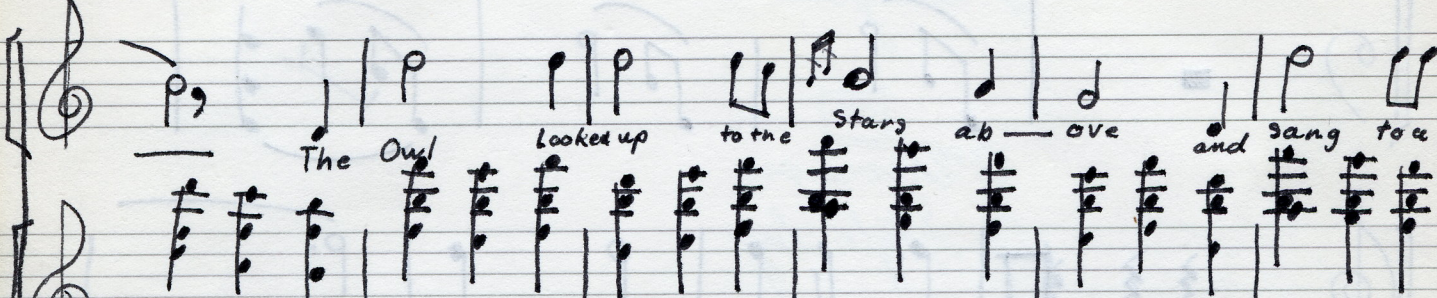 The Owl Looked up to the Stars ab — ove and sang to a